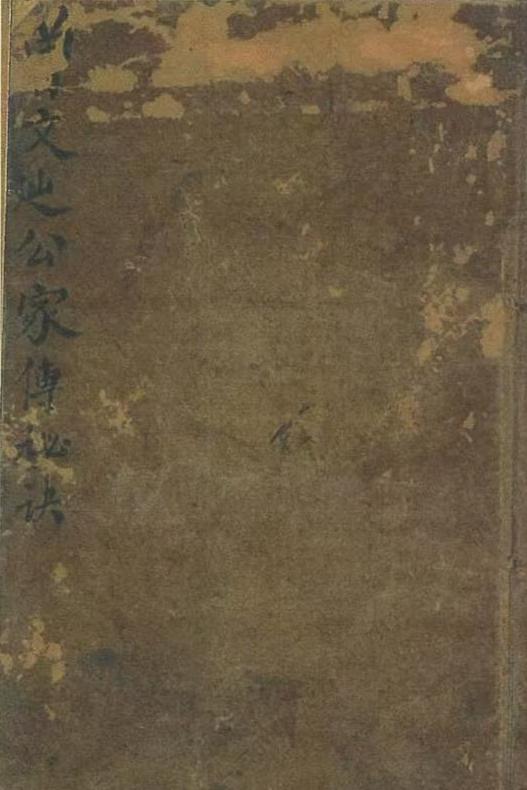 文辿公家傳秘訣